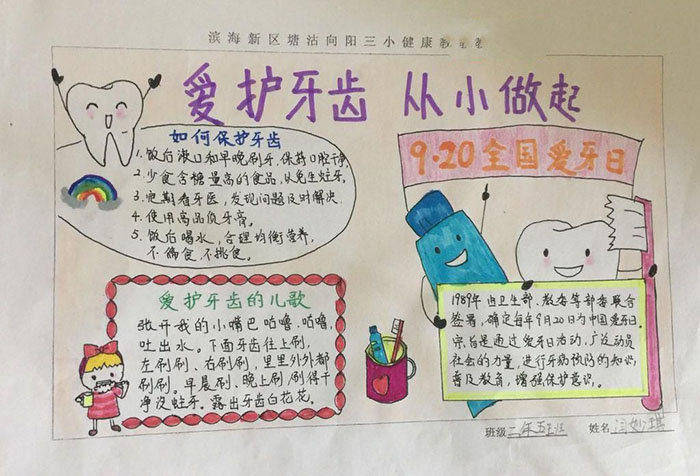 滨海新区塘沽向阳三小健康教
爱护牙齿 从小做起
如何保护牙齿
1. 饭后漱口和早晚刷牙,保持口腔干净.
2. 少食含糖量高的食品,以免生蛀牙.
3. 定期看牙医,发现问题及时解决.
4. 使用高品质牙膏.
5. 饭后喝水,合理均衡营养,
不偏食,不挑食.
9·20全国爱牙日
爱护牙齿的儿歌
张开我的小嘴巴咕噜.咕噜,
吐出水。下面牙齿往上刷,
左刷刷、右刷刷,里里外外都
刷刷。早晨刷、晚上刷,刷得干
净没蛀牙。露出牙齿白花花。
1989年由卫生部、教委等部委联合
签署,确定每年9月20日为中国爱牙日
宗旨是通过爱牙日活动,广泛动员
社会的力量,进行牙病预防的知识,
普及教育,增强保护意识。
班级 二年五班
姓名 闫